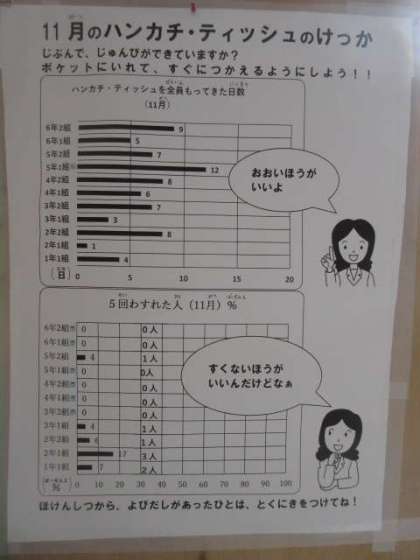 11月のハンカチ・ティッシュのけっか
じぶんで、じゅんびができていますか？
ポケットにいれて、すぐにつかえるようにしよう！！
ハンカチ・ティッシュを全員もってきた日数
（11月）
6年2組 9
6年1組 5
5年2組 7
5年1組 12
4年2組 8
4年1組 6
3年2組 7
3年1組 3
2年2組 8
2年1組 1
1年1組 4
（日） 0 5 10 15 20
おおいほうが
いいよ
5回わすれた人（11月）％
6年2組 0 0人
6年1組 0 0人
5年2組 4 1人
5年1組 0 0人
4年2組 0 0人
4年1組 0 0人
3年2組 0 0人
3年1組 4 1人
2年2組 1人
2年1組 17 3人
1年1組 7 2人
％ 0 10 20 30 40 50 60 70 80 90 100
すくないほうが
いいんだけどなぁ
ほけんしつから、よびだしがあったひとは、とくにきをつけてね！